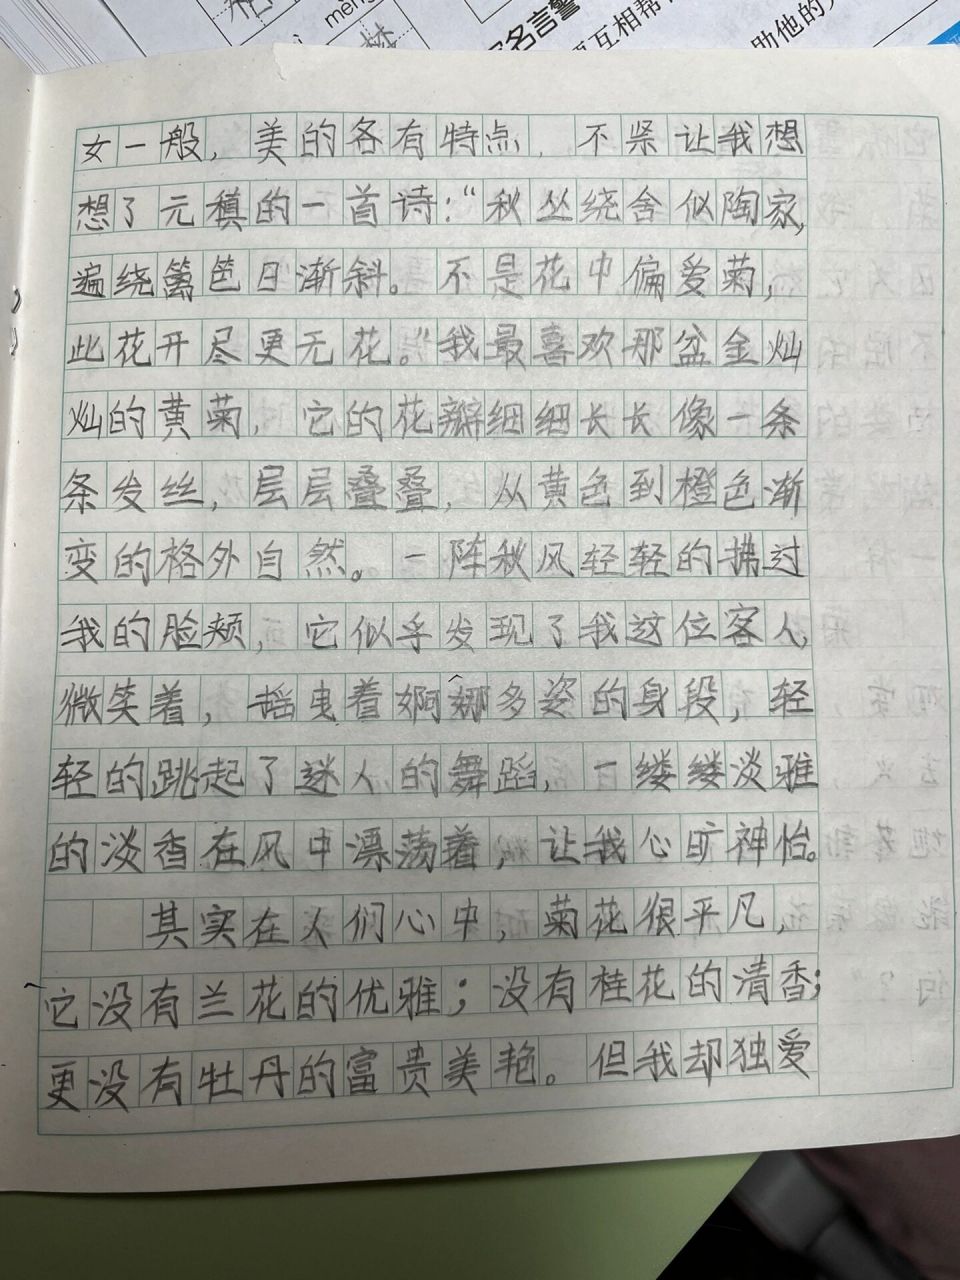 meng
名言警
互相帮
助他的
女一般，美的各有特点，不紧让我想
想了元稹的一首诗：“秋丛绕舍似陶家，
遍绕篱笆日渐斜。不是花中偏爱菊，
此花开尽更无花。”我最喜欢那盆金灿
灿的黄菊，它的花瓣细细长长像一条
条发丝，层层叠叠，从黄色到橙色渐
变的格外自然。一阵秋风轻轻的拂过
我的脸颊，它似乎发现了我这位客人，
微笑着，摇曳着婀娜多姿的身段，轻
轻的跳起了迷人的舞蹈，一缕缕淡雅
的淡香在风中漂荡着，让我心旷神怡。
其实在人们心中，菊花很平凡，
它没有兰花的优雅；没有桂花的清香；
更没有牡丹的富贵美艳。但我却独爱